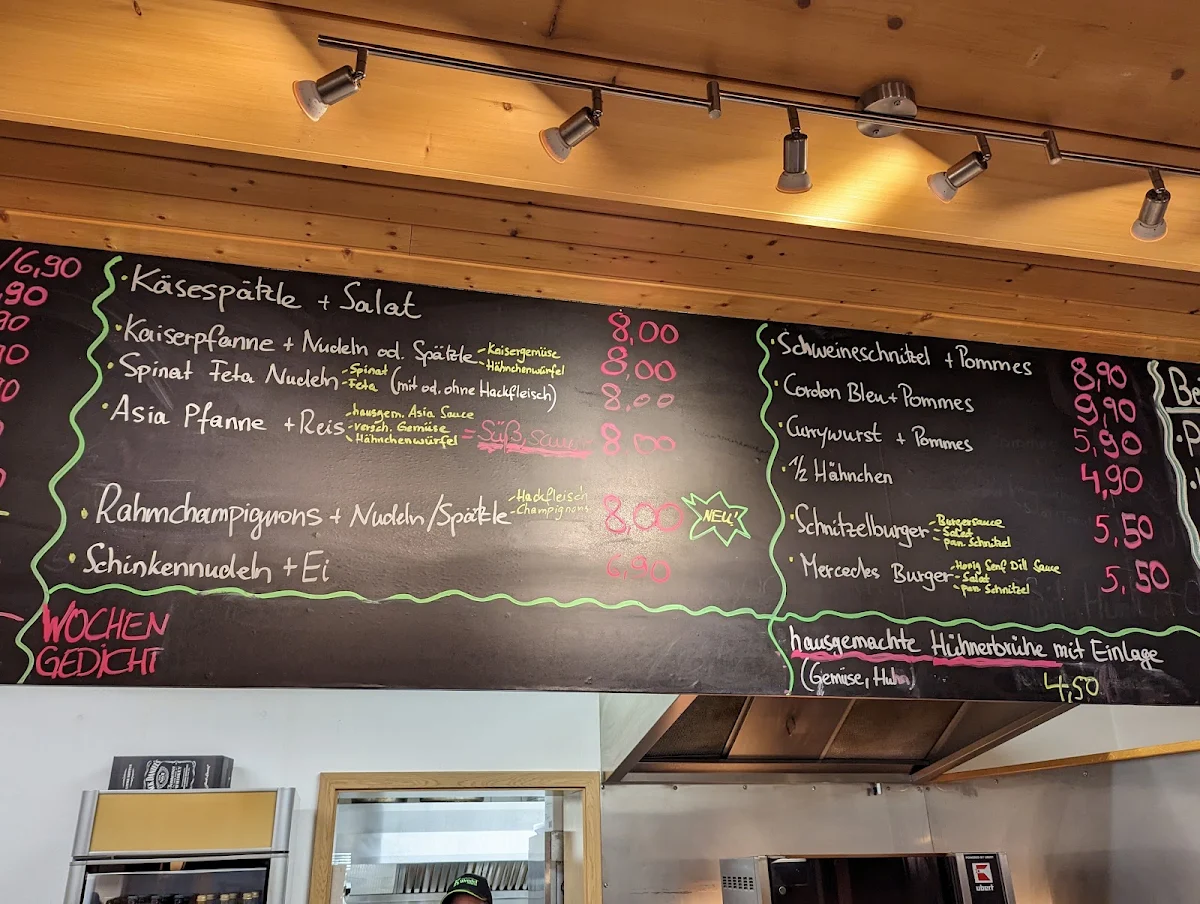 /6,90
,90
90
90
90
• Käsespätzle + Salat 8,00
• Kaiserpfanne + Nudeln od. Spätzle - Kaisergemüse 8,00
- Hähnchenwürfel
• Spinat Feta Nudeln - Spinat (mit od. ohne Hackfleisch) 8,00
- Feta
• Asia Pfanne + Reis - hausgem. Asia Sauce 8,00
- versch. Gemüse
- Hähnchenwürfel = Süß, sauer
• Rahmchampignons + Nudeln/Spätzle - Hackfleisch 8,00 NEU!
- Champignons
• Schinkennudeln + Ei 6,90
WOCHEN
GEDICHT
• Schweineschnitzel + Pommes 8,90
• Cordon Bleu + Pommes 9,90
• Currywurst + Pommes 5,90
• 1/2 Hähnchen 4,90
• Schnitzelburger - Burgersauce 5,50
- Salat
- pan. Schnitzel
• Mercedes Burger - Honig Senf Dill Sauce 5,50
- Salat
- pan. Schnitzel
hausgemachte Hühnerbrühe mit Einlage
(Gemüse, Huhn) 4,50
Be
JACK DANIEL'S
ubert